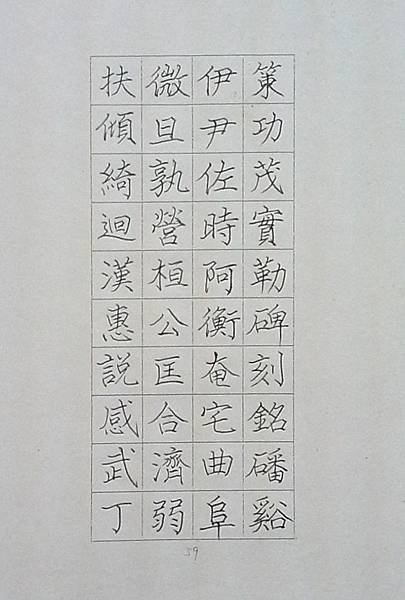 策功茂實勒碑刻銘磻谿
伊尹佐時阿衡奄宅曲阜
微旦孰營桓公匡合濟弱
扶傾綺迴漢惠説感武丁
59